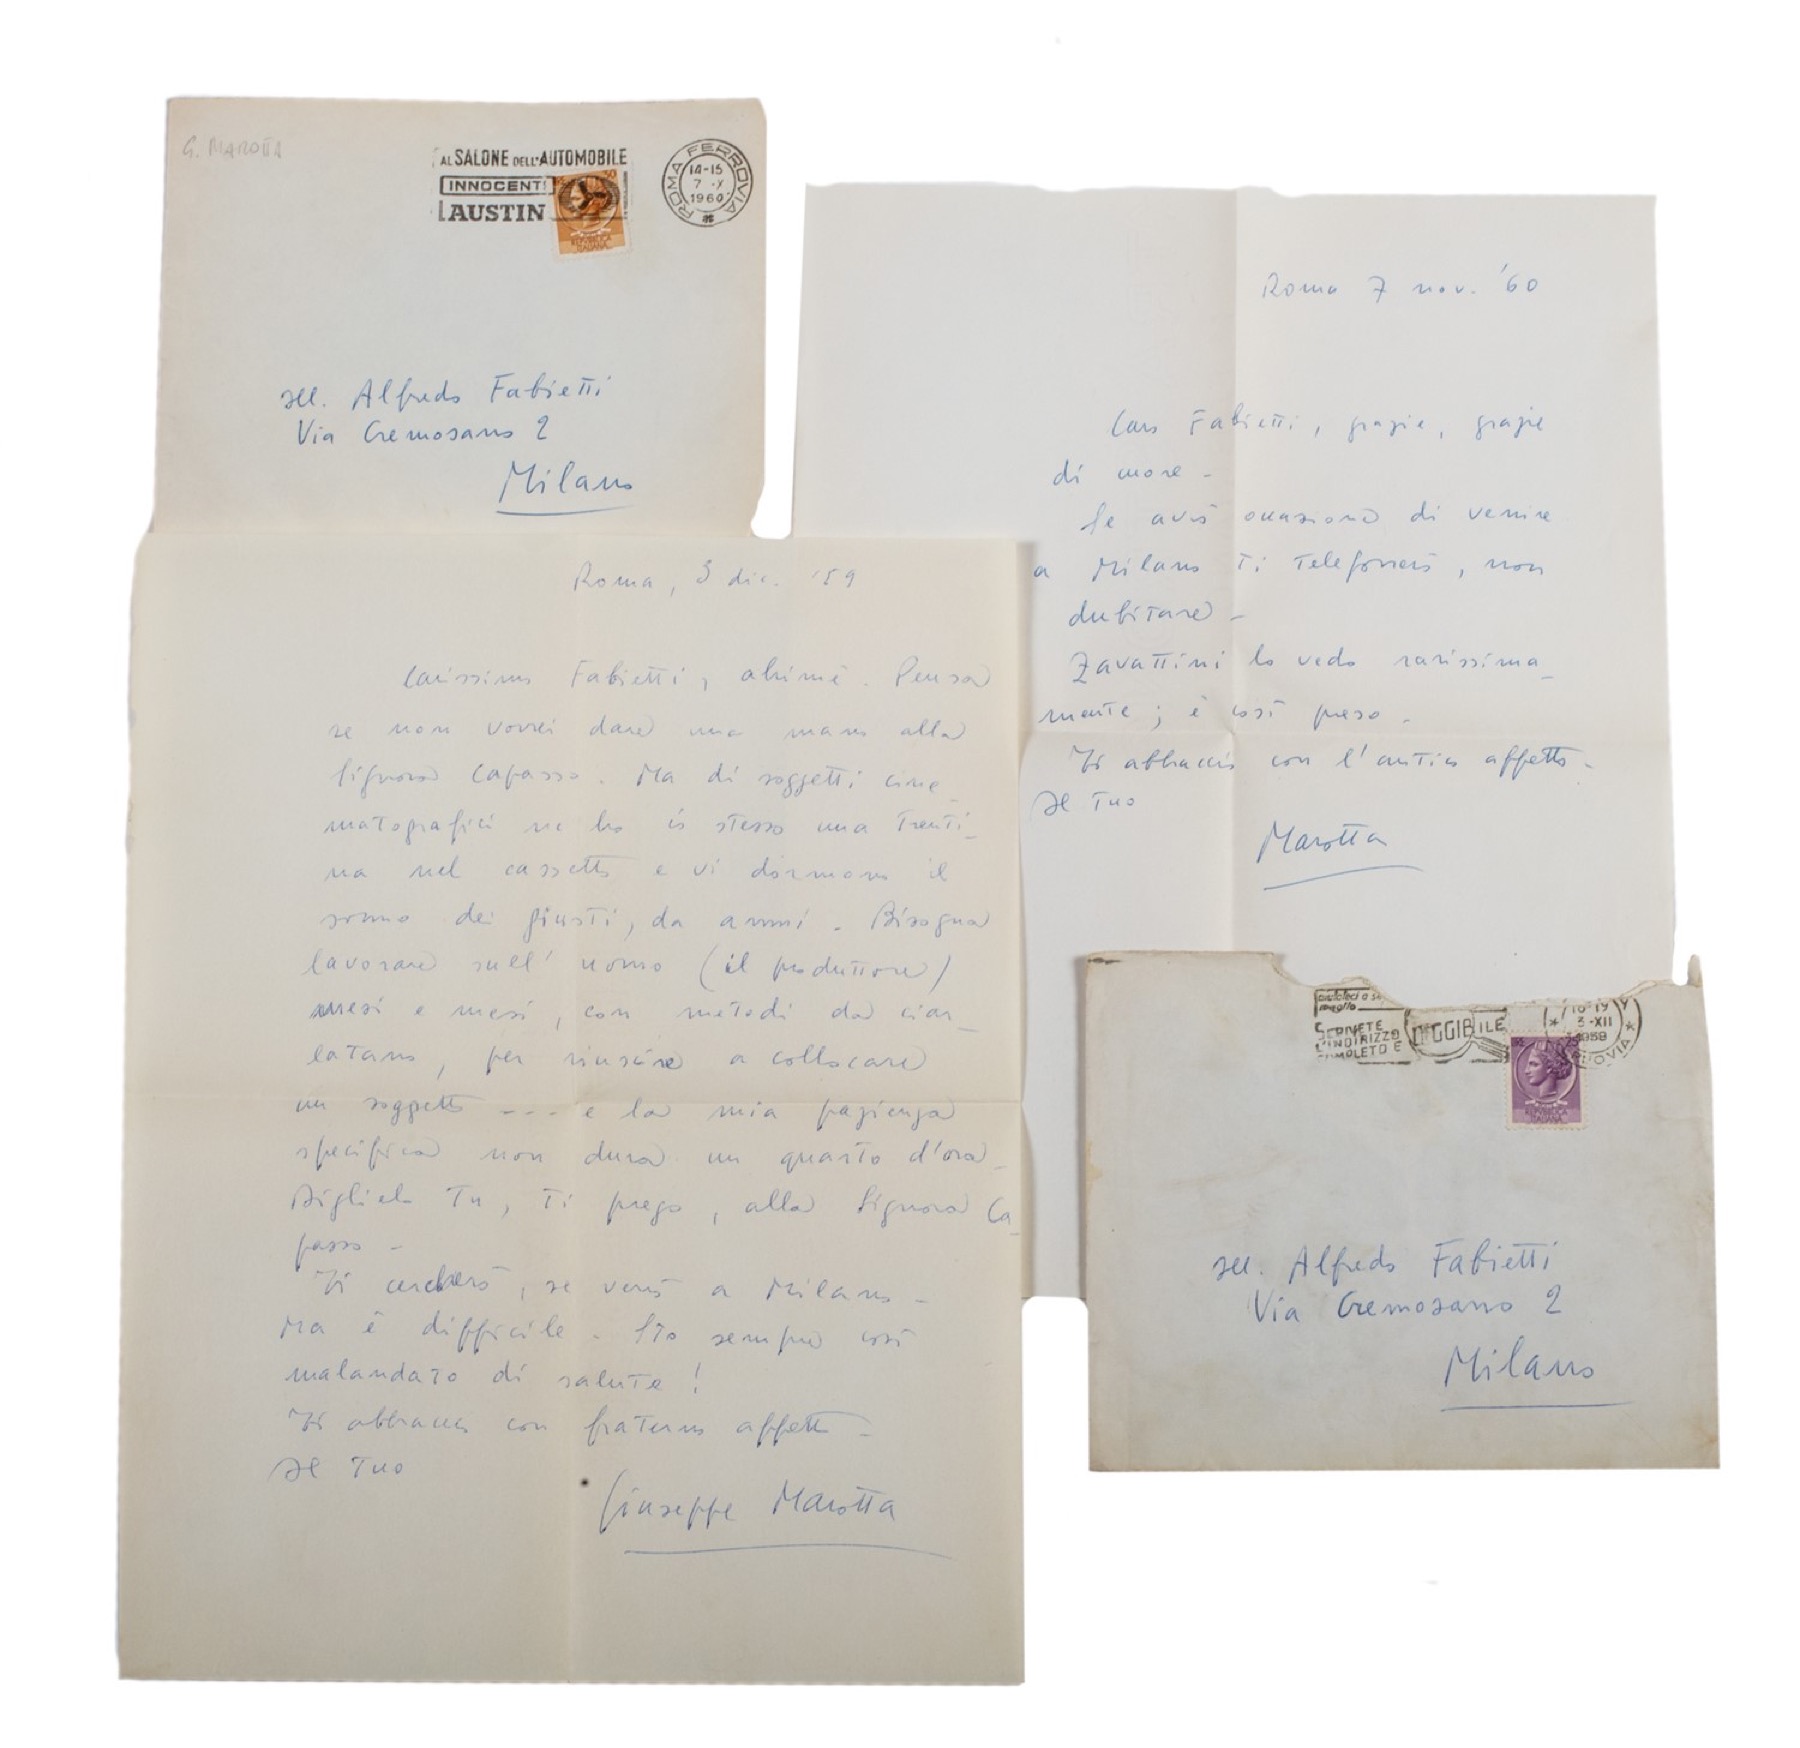 G. MAROTTA
AL SALONE DELL'AUTOMOBILE
INNOCENTI
AUSTIN
50
REPUBBLICA
ITALIANA
ROMA FERROVIA
14-15
7 X
1960
Alfredo Fabietti
Via Cremosano 2
Milano
Roma 7 nov. '60
Caro Fabietti, grazie, grazie
di cuore -
Se avrò occasione di venire
a Milano ti telefonerò, non
dubitare -
Zavattini lo vedo rarissima_
mente; è così preso -
Ti abbraccio con l'antico affetto -
Il tuo
Marotta
Roma, 3 dic. '59
Carissimo Fabietti, ahimè. Pensa
se non vorrei dare una mano alla
Signora Capasso. Ma di soggetti cine_
matografici ne ho io stesso una trenti_
na nel cassetto e vi dormono il
sonno dei giusti, da anni - Bisogna
lavorare sull'uomo (il produttore)
mesi e mesi, con metodi da ciar_
latano, per riuscire a collocare
un soggetto --- e la mia pazienza
specifica non dura un quarto d'ora -
Diglielo tu, ti prego, alla Signora Ca_
passo -
Ti cercherò, se verrò a Milano -
Ma è difficile - Sto sempre così
malandato di salute!
Ti abbraccio con fraterno affetto -
Il tuo
Giuseppe Marotta
SCRIVETE
L'INDIRIZZO
COMPLETO E
LEGGIBILE
18-19
3-XII
1959
25
REPUBBLICA
ITALIANA
Alfredo Fabietti
Via Cremosano 2
Milano